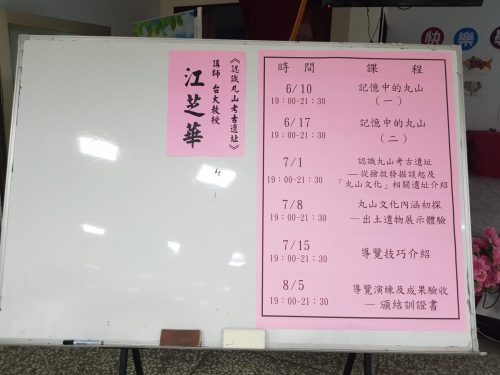 快樂學
《認識丸山考古遺址》
講師 台大教授
江芝華
時間 課程
6/10
19:00-21:30
記憶中的丸山
(一)
6/17
19:00-21:30
記憶中的丸山
(二)
7/1
19:00-21:30
認識丸山考古遺址
—從搶救發掘談起及
「丸山文化」相關遺址介紹
7/8
19:00-21:30
丸山文化內涵初探
—出土遺物展示體驗
7/15
19:00-21:30
導覽技巧介紹
8/5
19:00-21:30
導覽演練及成果驗收
— 頒結訓證書